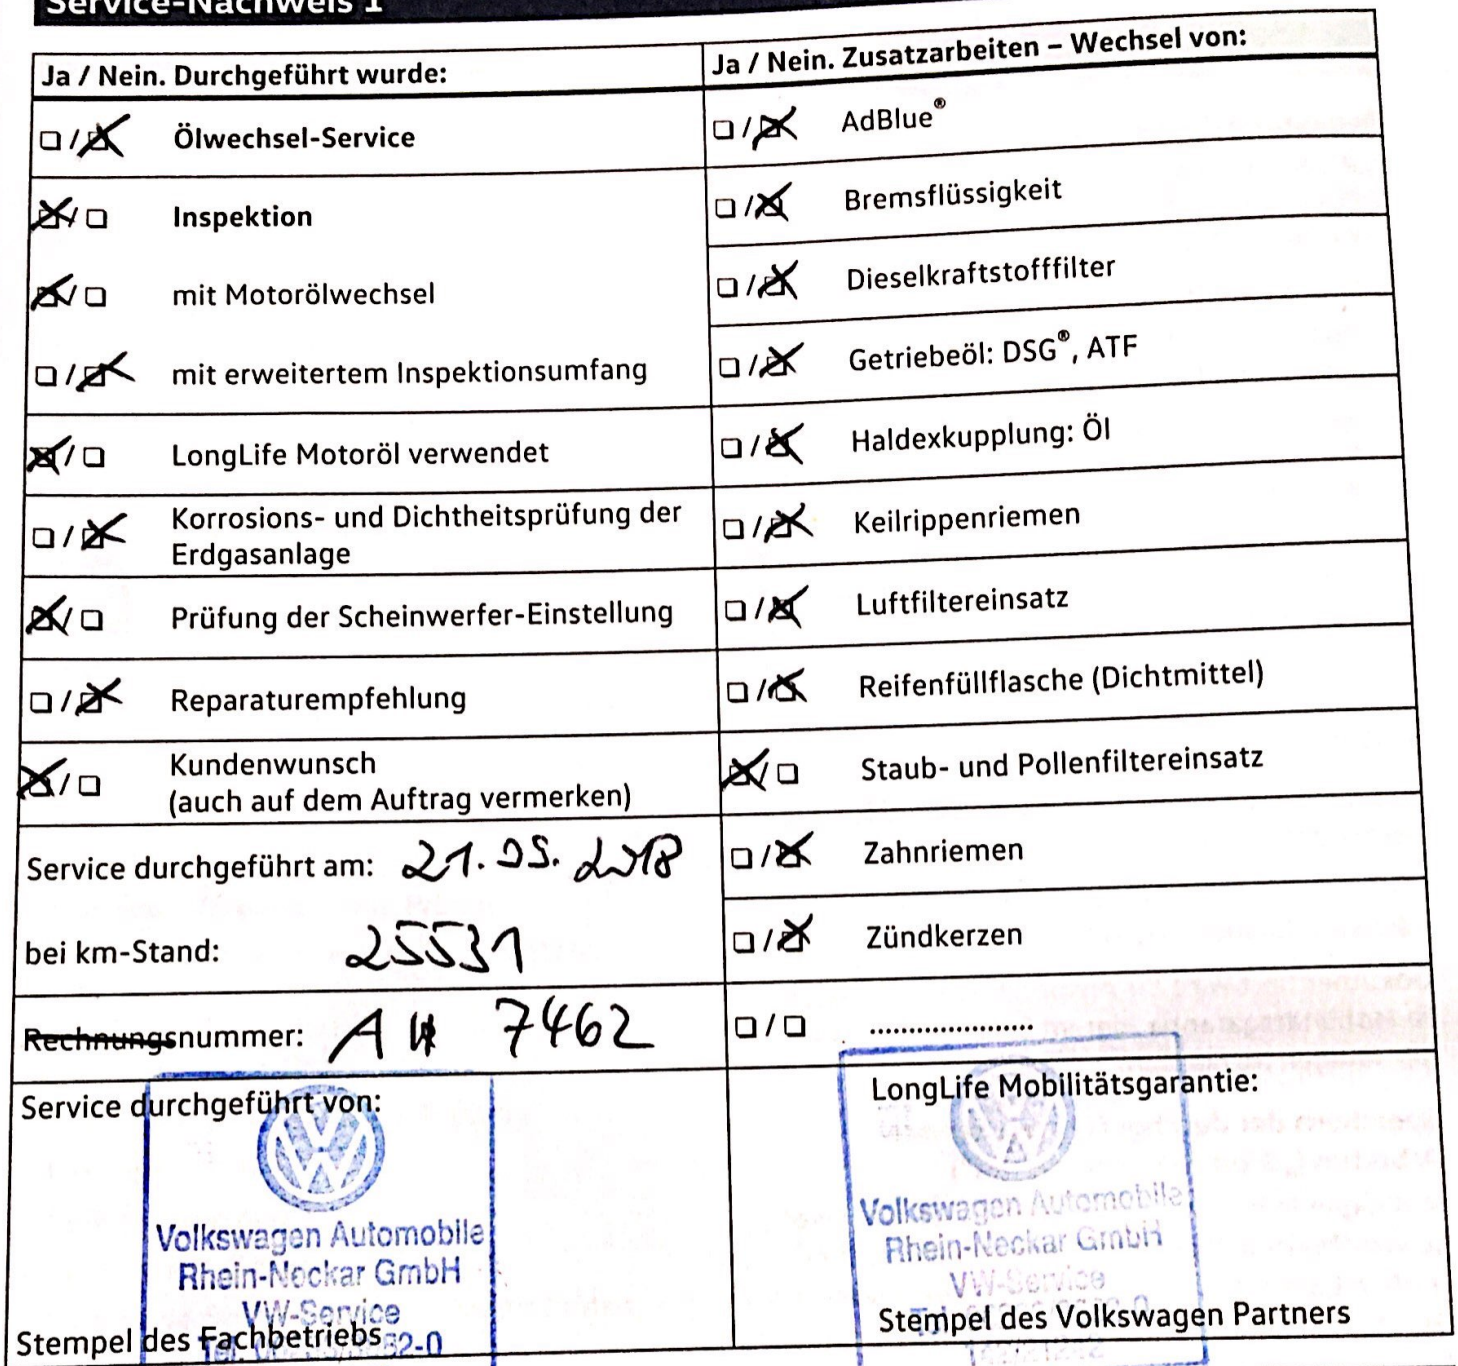 Service-Nachweis 1
Ja / Nein. Durchgeführt wurde:
Ölwechsel-Service
Inspektion
mit Motorölwechsel
mit erweitertem Inspektionsumfang
LongLife Motoröl verwendet
Korrosions- und Dichtheitsprüfung der
Erdgasanlage
Prüfung der Scheinwerfer-Einstellung
Reparaturempfehlung
Kundenwunsch
(auch auf dem Auftrag vermerken)
Service durchgeführt am: 21.05.2018
bei km-Stand: 25531
Rechnungsnummer: A 7462
Service durchgeführt von:
Volkswagen Automobile
Rhein-Neckar GmbH
VW-Service
Stempel des Fachbetriebs
Ja / Nein. Zusatzarbeiten – Wechsel von:
AdBlue®
Bremsflüssigkeit
Dieselkraftstofffilter
Getriebeöl: DSG®, ATF
Haldexkupplung: Öl
Keilrippenriemen
Luftfiltereinsatz
Reifenfüllflasche (Dichtmittel)
Staub- und Pollenfiltereinsatz
Zahnriemen
Zündkerzen
......................
LongLife Mobilitätsgarantie:
Volkswagen Automobile
Rhein-Neckar GmbH
VW-Service
Stempel des Volkswagen Partners